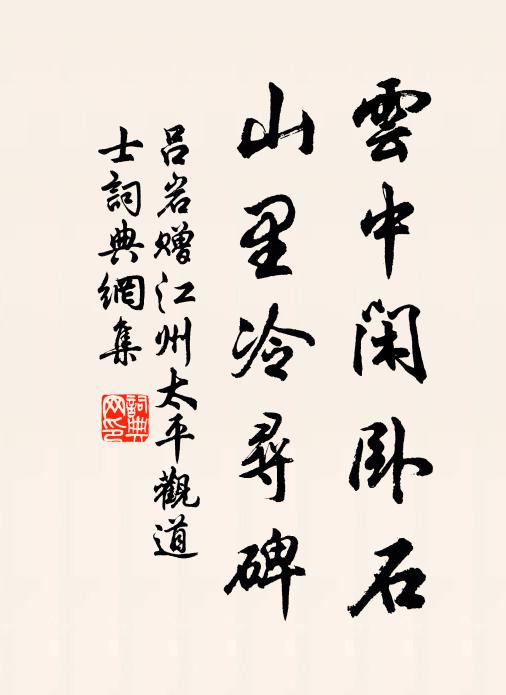 雲中閑卧石
山里冷尋碑
吕岩贈江州太平觀道
士詞典網集
詞典網印